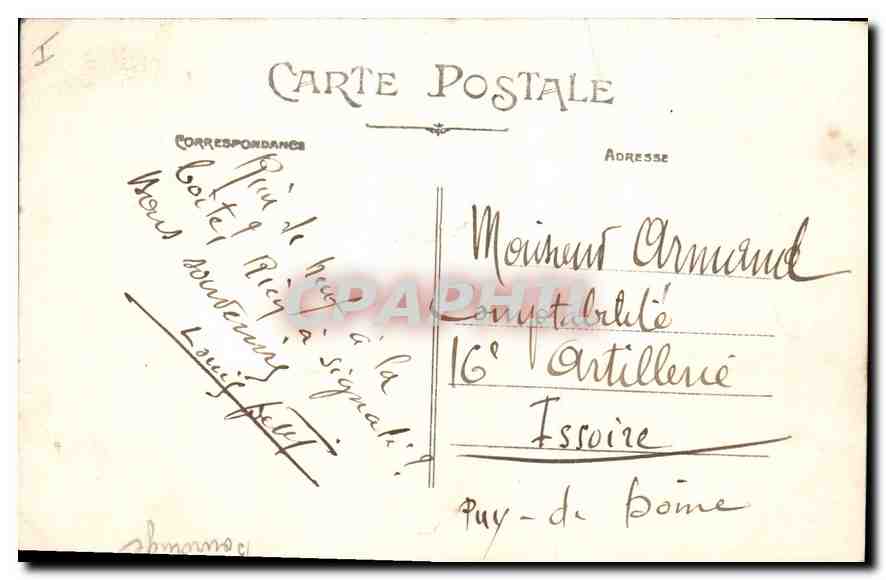 I
CARTE POSTALE
CORRESPONDANCE
ADRESSE
Rien de neuf à la
boîte, Rien à signaler
Bons souvenirs
Louis
Monsieur Armand
Comptabilité
16e Artillerie
Issoire
Puy-de Dôme
CPAPHIL